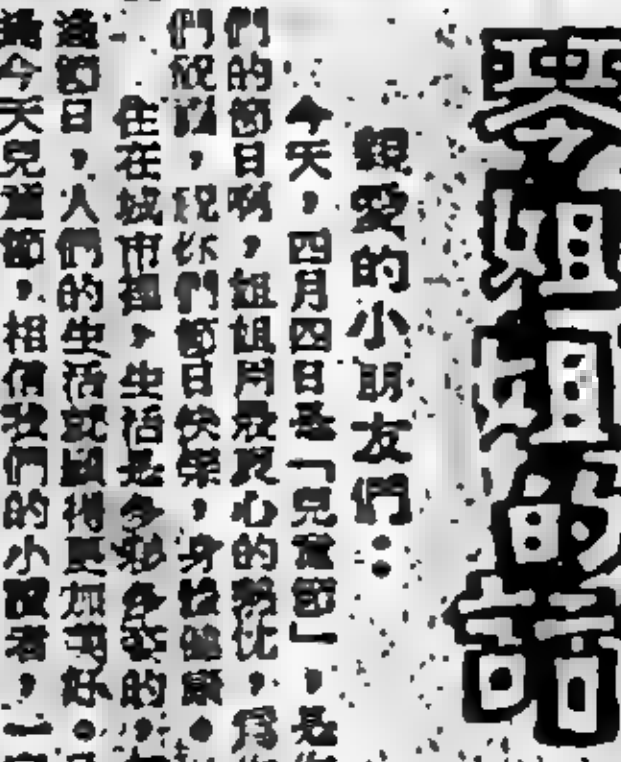 琴姐姐的話
親愛的小朋友們：
今天，四月四日是「兒童節」，是
們的節日啊，姐姐用最良心的
們祝以，祝你們節日快樂，身體健康。
住在城市裡，生活是多多的，
過節日，人們的生活就顯得更加美好。
過今天兒童節，相信我們的小讀者，一